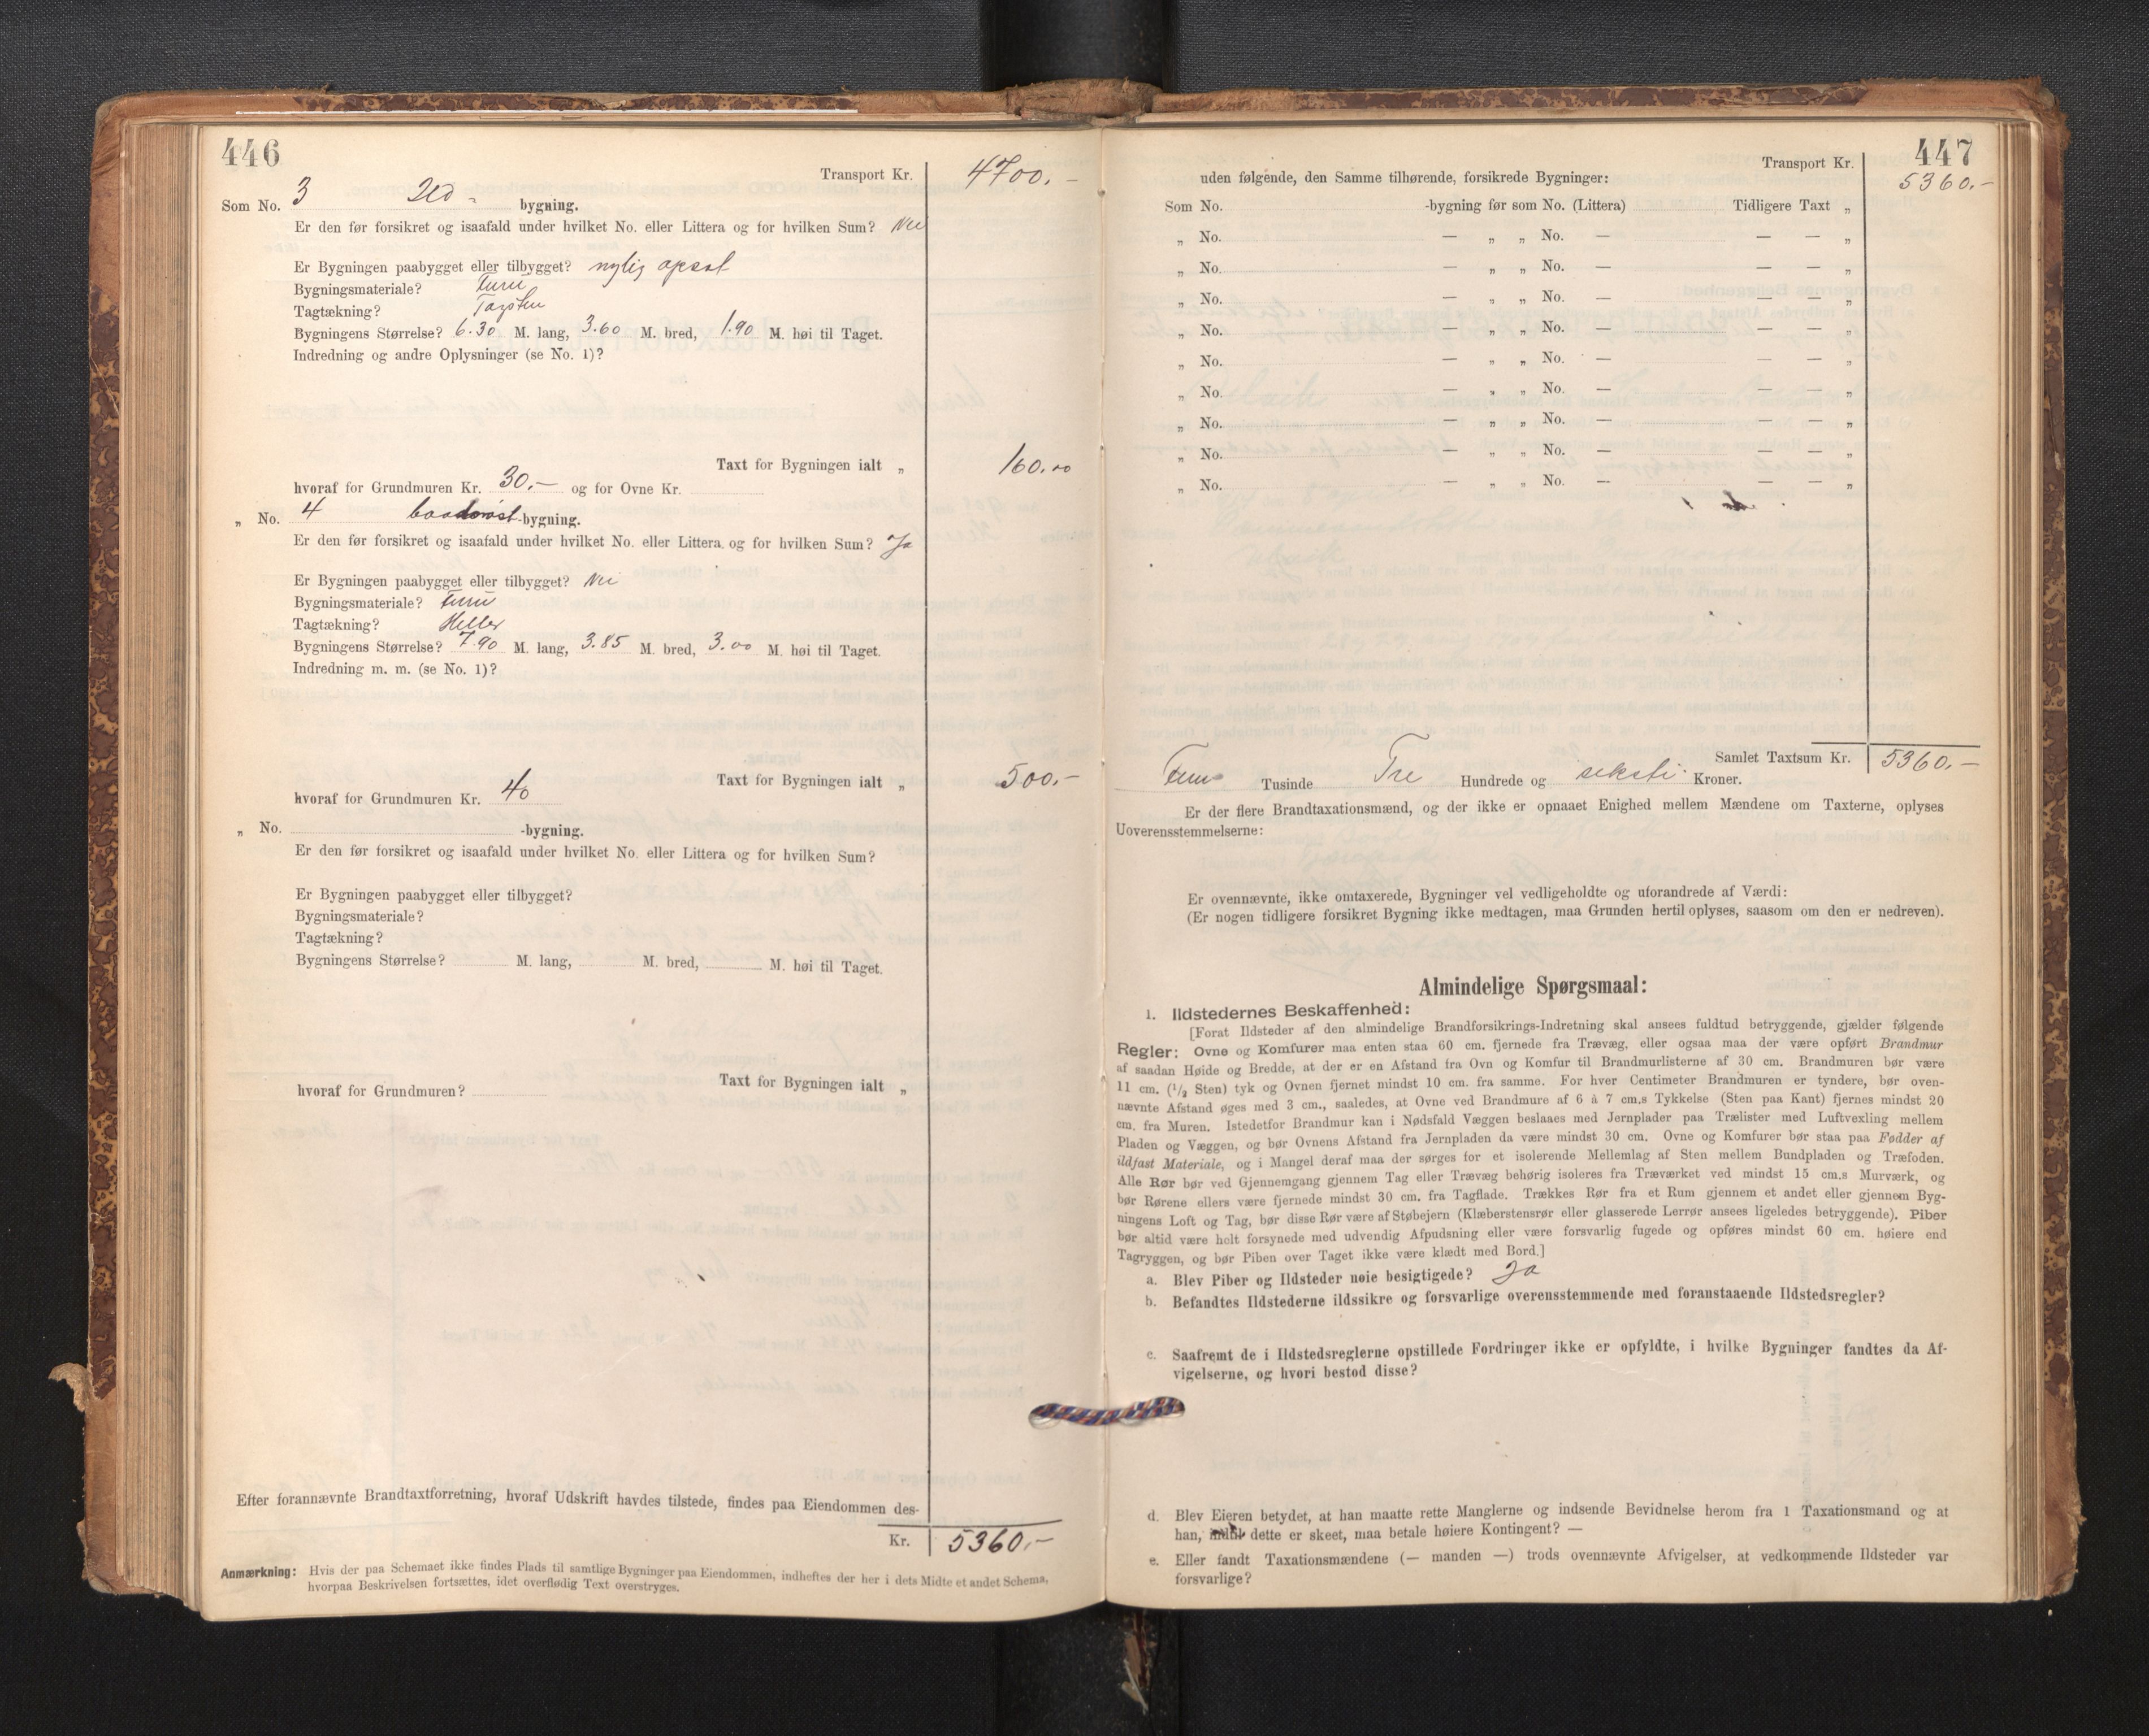 446
Transport Kr. 4700.-
Som No. 3 Ved- bygning.
Er den før forsikret og isaafald under hvilket No. eller Littera og for hvilken Sum? Nei
Er Bygningen paabygget eller tilbygget? nylig opsat
Bygningsmateriale? Furu
Tagtækning? Tagsten
Bygningens Størrelse? 6.30 M. lang, 3.60 M. bred, 1.90 M. høi til Taget.
Indredning og andre Oplysninger (se No. 1)?
Taxt for Bygningen ialt „ 160.00
hvoraf for Grundmuren Kr. 30.- og for Ovne Kr.
„ No. 4 -bygning.
Er den før forsikret og isaafald under hvilket No. eller Littera og for hvilken Sum? Ja
Er Bygningen paabygget eller tilbygget? Nei
Bygningsmateriale? Furu
Tagtækning? Heller
Bygningens Størrelse? 7.90 M. lang, 3.85 M. bred, 3.00 M. høi til Taget.
Indredning m. m. (se No. 1)?
Taxt for Bygningen ialt „ 500.-
hvoraf for Grundmuren Kr. 40
„ No. -bygning.
Er den før forsikret og isaafald under hvilket No. eller Littera og for hvilken Sum?
Er Bygningen paabygget eller tilbygget?
Bygningsmateriale?
Tagtækning?
Bygningens Størrelse? M. lang, M. bred, M. høi til Taget.
Taxt for Bygningen ialt „
hvoraf for Grundmuren?
Efter forannævnte Brandtaxtforretning, hvoraf Udskrift havdes tilstede, findes paa Eiendommen des-
Kr. 5360.-
Anmærkning: Hvis der paa Schemaet ikke findes Plads til samtlige Bygninger paa Eiendommen, indheftes der her i dets Midte et andet Schema,
hvorpaa Beskrivelsen fortsættes, idet overflødig Text overstryges.
447
Transport Kr.
uden følgende, den Samme tilhørende, forsikrede Bygninger: 5360.-
Som No. -bygning før som No. (Littera) Tidligere Taxt „
„ No. — „ „ No. — — — „
„ No. — „ „ No. — — — „
„ No. — „ „ No. — — — „
„ No. — „ „ No. — — — „
„ No. — „ „ No. — — — „
„ No. — „ „ No. — — — „
„ No. — „ „ No. — — — „
„ No. — „ „ No. — — — „
„ No. — „ „ No. — — — „
Samlet Taxtsum Kr. 5360.-
Fem Tusinde Tre Hundrede og seksti Kroner.
Er der flere Brandtaxationsmænd, og der ikke er opnaaet Enighed mellem Mændene om Taxterne, oplyses
Uoverensstemmelserne:
Er ovennævnte, ikke omtaxerede, Bygninger vel vedligeholdte og uforandrede af Værdi:
(Er nogen tidligere forsikret Bygning ikke medtagen, maa Grunden hertil oplyses, saasom om den er nedreven).
Almindelige Spørgsmaal:
1. Ildstedernes Beskaffenhed:
[Forat Ildsteder af den almindelige Brandforsikrings-Indretning skal ansees fuldtud betryggende, gjælder følgende
Regler: Ovne og Komfurer maa enten staa 60 cm. fjernede fra Trævæg, eller ogsaa maa der være opført Brandmur
af saadan Høide og Bredde, at der er en Afstand fra Ovn og Komfur til Brandmurlisterne af 30 cm. Brandmuren bør være
11 cm. (½ Sten) tyk og Ovnen fjernet mindst 10 cm. fra samme. For hver Centimeter Brandmuren er tyndere, bør oven-
nævnte Afstand øges med 3 cm., saaledes, at Ovne ved Brandmure af 6 à 7 cm.s Tykkelse (Sten paa Kant) fjernes mindst 20
cm. fra Muren. Istedetfor Brandmur kan i Nødsfald Væggen beslaaes med Jernplader paa Trælister med Luftvexling mellem
Pladen og Væggen, og bør Ovnens Afstand fra Jernpladen da være mindst 30 cm. Ovne og Komfurer bør staa paa Fødder af
ildfast Materiale, og i Mangel deraf maa der sørges for et isolerende Mellemlag af Sten mellem Bundpladen og Træfoden.
Alle Rør bør ved Gjennemgang gjennem Tag eller Trævæg behørig isoleres fra Træværket ved mindst 15 cm.s Murværk, og
bør Rørene ellers være fjernede mindst 30 cm. fra Tagflade. Trækkes Rør fra et Rum gjennem et andet eller gjennem Byg-
ningens Loft og Tag, bør disse Rør være af Støbejern (Klæberstensrør eller glasserede Lerrør ansees ligeledes betryggende). Piber
bør altid være helt forsynede med udvendig Afpudsning eller være forsvarlig fugede og opføres mindst 60 cm. høiere end
Tagryggen, og bør Piben over Taget ikke være klædt med Bord.]
a. Blev Piber og Ildsteder nøie besigtigede? Ja
b. Befandtes Ildstederne ildssikre og forsvarlige overensstemmende med foranstaaende Ildstedsregler?
c. Saafremt de i Ildstedsreglerne opstillede Fordringer ikke er opfyldte, i hvilke Bygninger fandtes da Af-
vigelserne, og hvori bestod disse?
d. Blev Eieren betydet, at han maatte rette Manglerne og indsende Bevidnelse herom fra 1 Taxationsmand og at
han, indtil dette er skeet, maa betale høiere Kontingent? —
e. Eller fandt Taxationsmændene (— manden —) trods ovennævnte Afvigelser, at vedkommende Ildsteder var
forsvarlige?